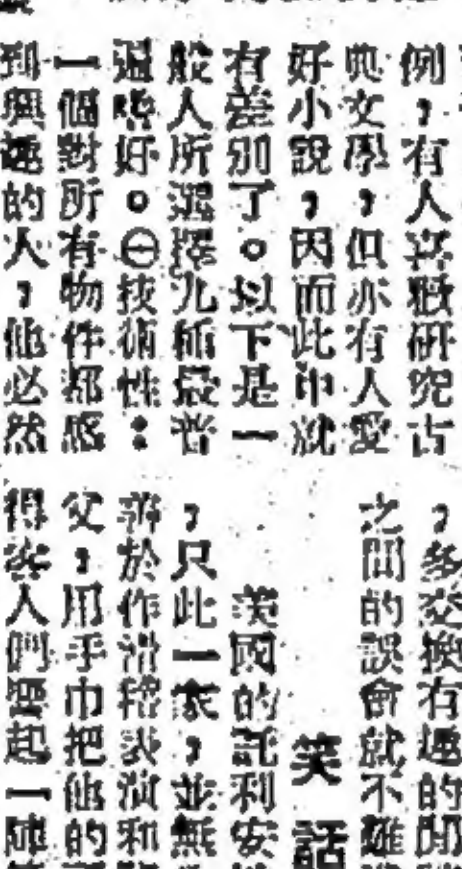 例，有人喜歡研究古
典文學，但亦有人愛
好小說，因而此中就
有差別了。以下是一
般人所選擇九種最普
遍嗜好。㊀技術性：
一個對所有物件都感
到興趣的人，他必然
，多交換有趣的閒
之間的誤會就不難
笑話
美國的託利安
，只此一家，並無
於作滑稽表演和
父，用手巾把他的
得客人們起一陣